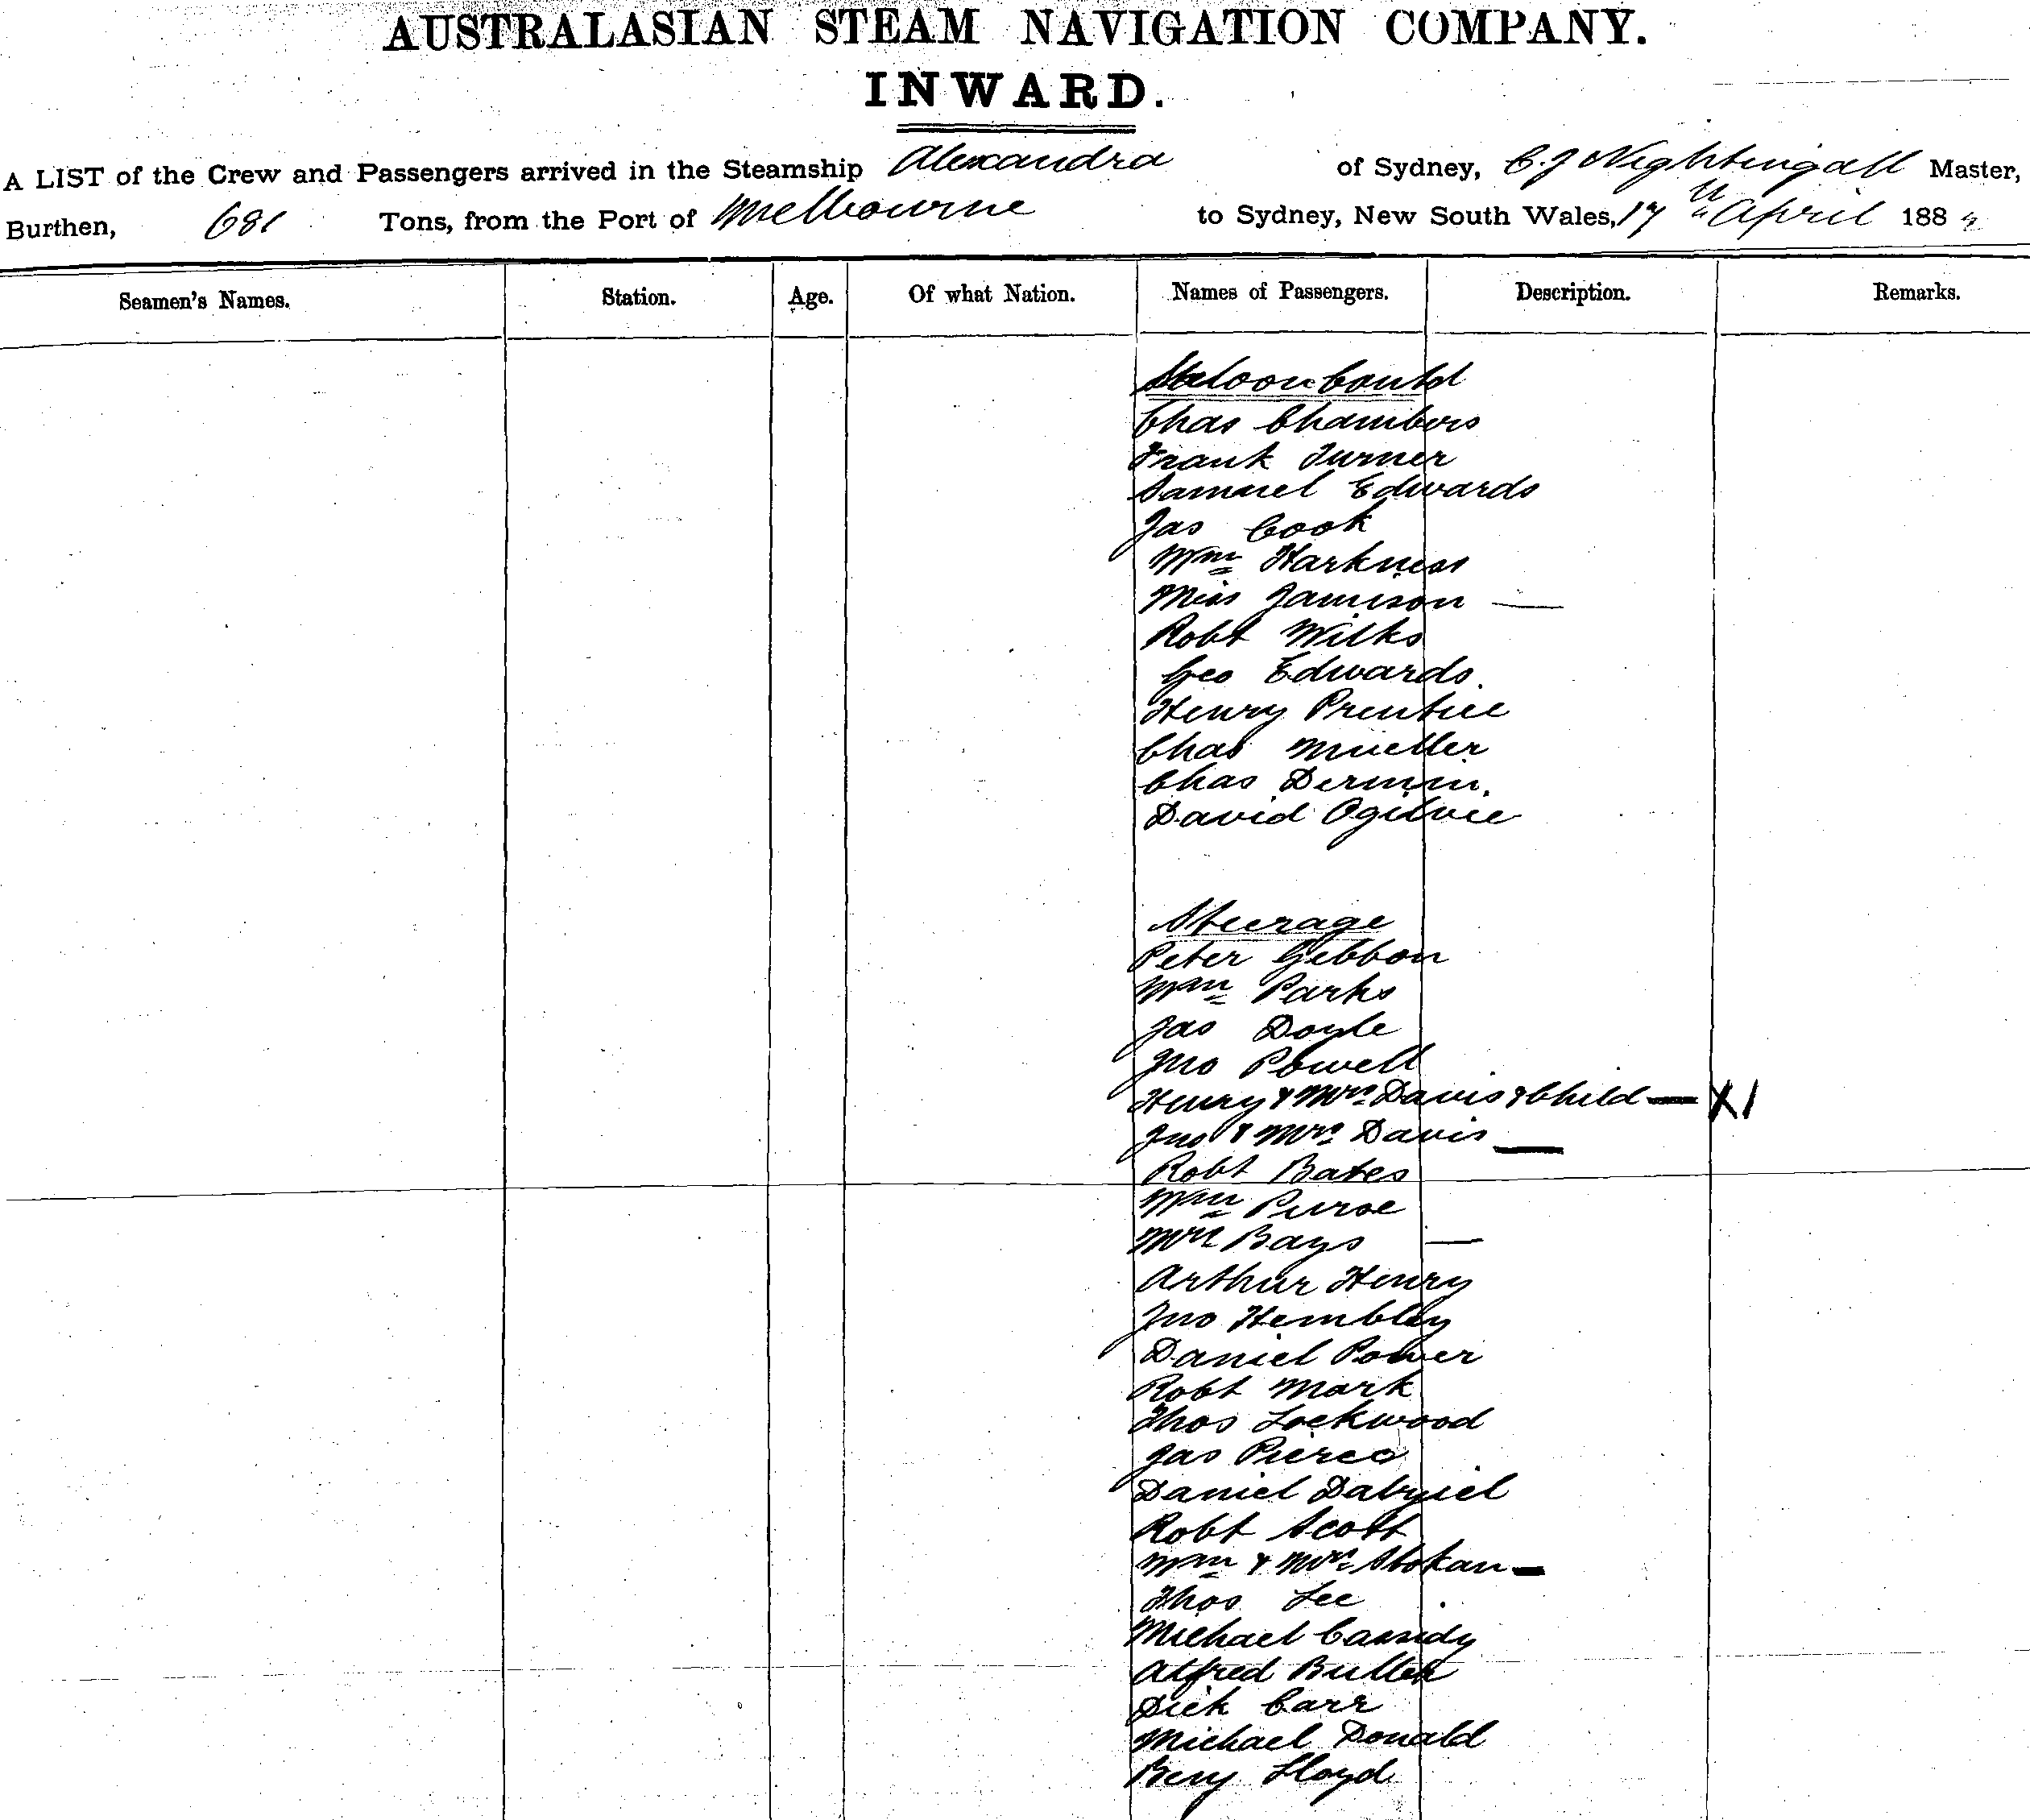 AUSTRALASIAN STEAM NAVIGATION COMPANY.
INWARD.
A LIST of the Crew and Passengers arrived in the Steamship Alexandra of Sydney, C. J Nightingall Master,
Burthen, 681 Tons, from the Port of Melbourne to Sydney, New South Wales, 17th April 188
Seamen's Names. Station. Age. Of what Nation. Names of Passengers. Description. Remarks.
Saloon
Chas Chambers
Frank Turner
Samuel Edwards
Jas Cook
Wm Harkness
Miss Jamison —
Robt Wilks
Geo Edwards.
Henry Prentice
Chas Mueller
Chas
David Ogilvie
Steerage
Peter Gibbon
Wm Parks
Jas Doyle
Jno Powell
Henry & Mrs Davis & Child — X1
Jno & Mrs Davis —
Robt Bates
Wm Purse
Mrs Bays —
Arthur Henry
Jno Hembley
Daniel Power
Robt Mark
Thos Lockwood
Jas Pierce
Daniel
Robt Scott
Wm & Mrs —
Thos Lee
Michael Cassidy
Alfred Bullen
Dick Carr
Michael Donald
Benj Lloyd